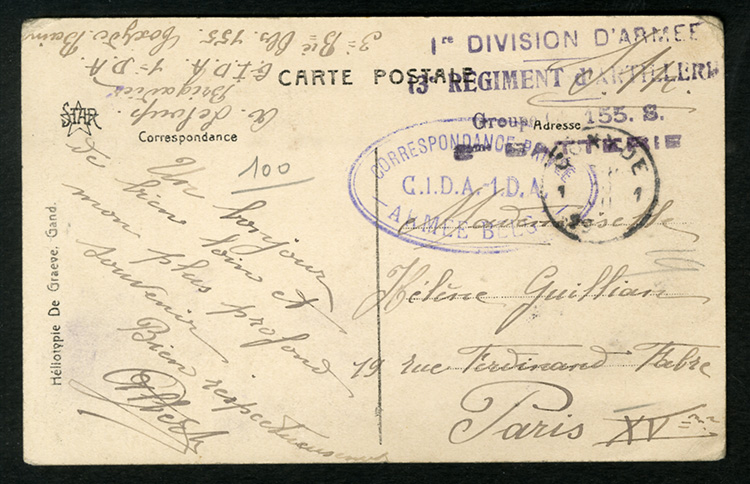 1re DIVISION D'ARMEE
13e REGIMENT d'ARTILLERIE
Groupe 155. S.
BATTERIE
CARTE POSTALE
A. Leloup.
Brigadier
C.I.D.A. 1e D.A.
3e Bie Obs. 155. Coxyde Bains
STAR
Correspondance
Adresse
CORRESPONDANCE PRIVÉE
C.I.D.A.-1D.A.
ARMEE BELGE
100
Un bonjour
de bien loin et
mon plus profond
souvenir
Bien respectueusement
Albert
Mademoiselle
Hélène Guillian
19 rue Ferdinand Fabre
Paris XVe
Héliotypie De Graeve, Gand.